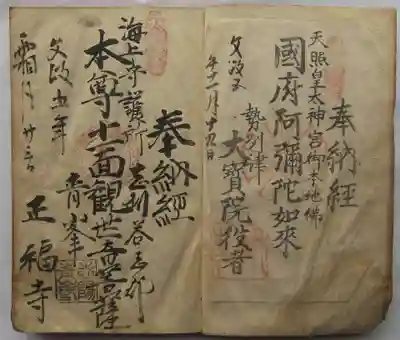 奉納経
天照皇太神宮御本地佛
國府阿彌陀如來
勢刕津
大寶院役者
文政五
年十一月十九日
奉納経
志刕答志郡
海上守護所
本尊十一面観世音菩薩
青峯
正福寺
文政五年
霜月廿